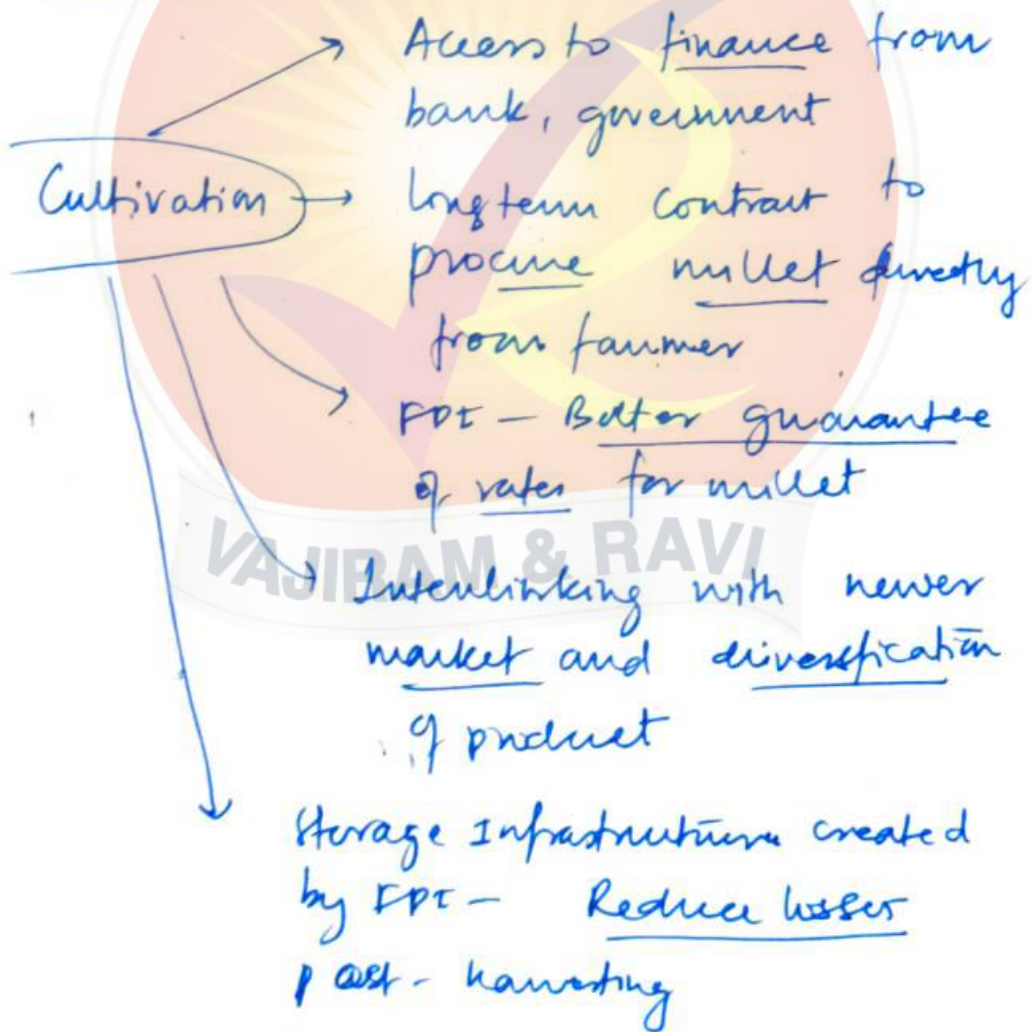 Access to finance from
bank, government
Cultivation
Long term contract to
procure millet directly
from farmer
FPI - Better guarantee
of rates for millet
VAJIRAM & RAVI
Interlinking with newer
market and diversification
of product
Storage Infrastructure created
by FPI - Reduce losses
post-harvesting